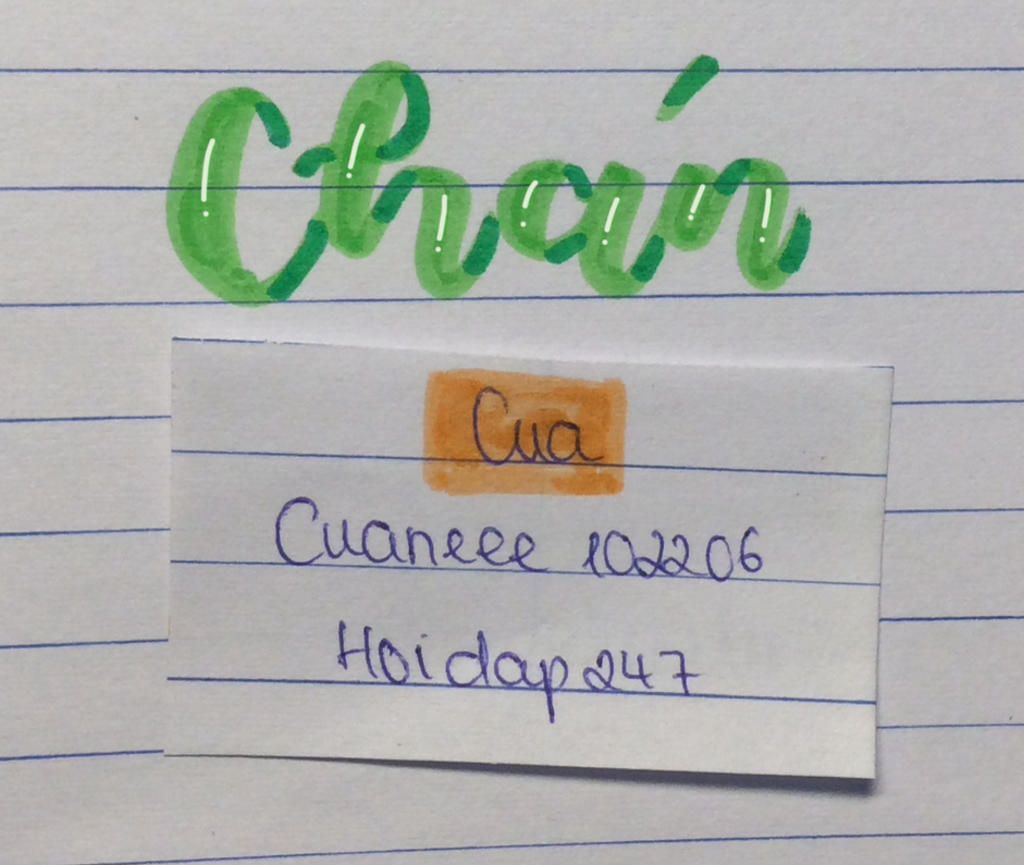 Chán
Cua
Cuaneee 102206
Hoidap247